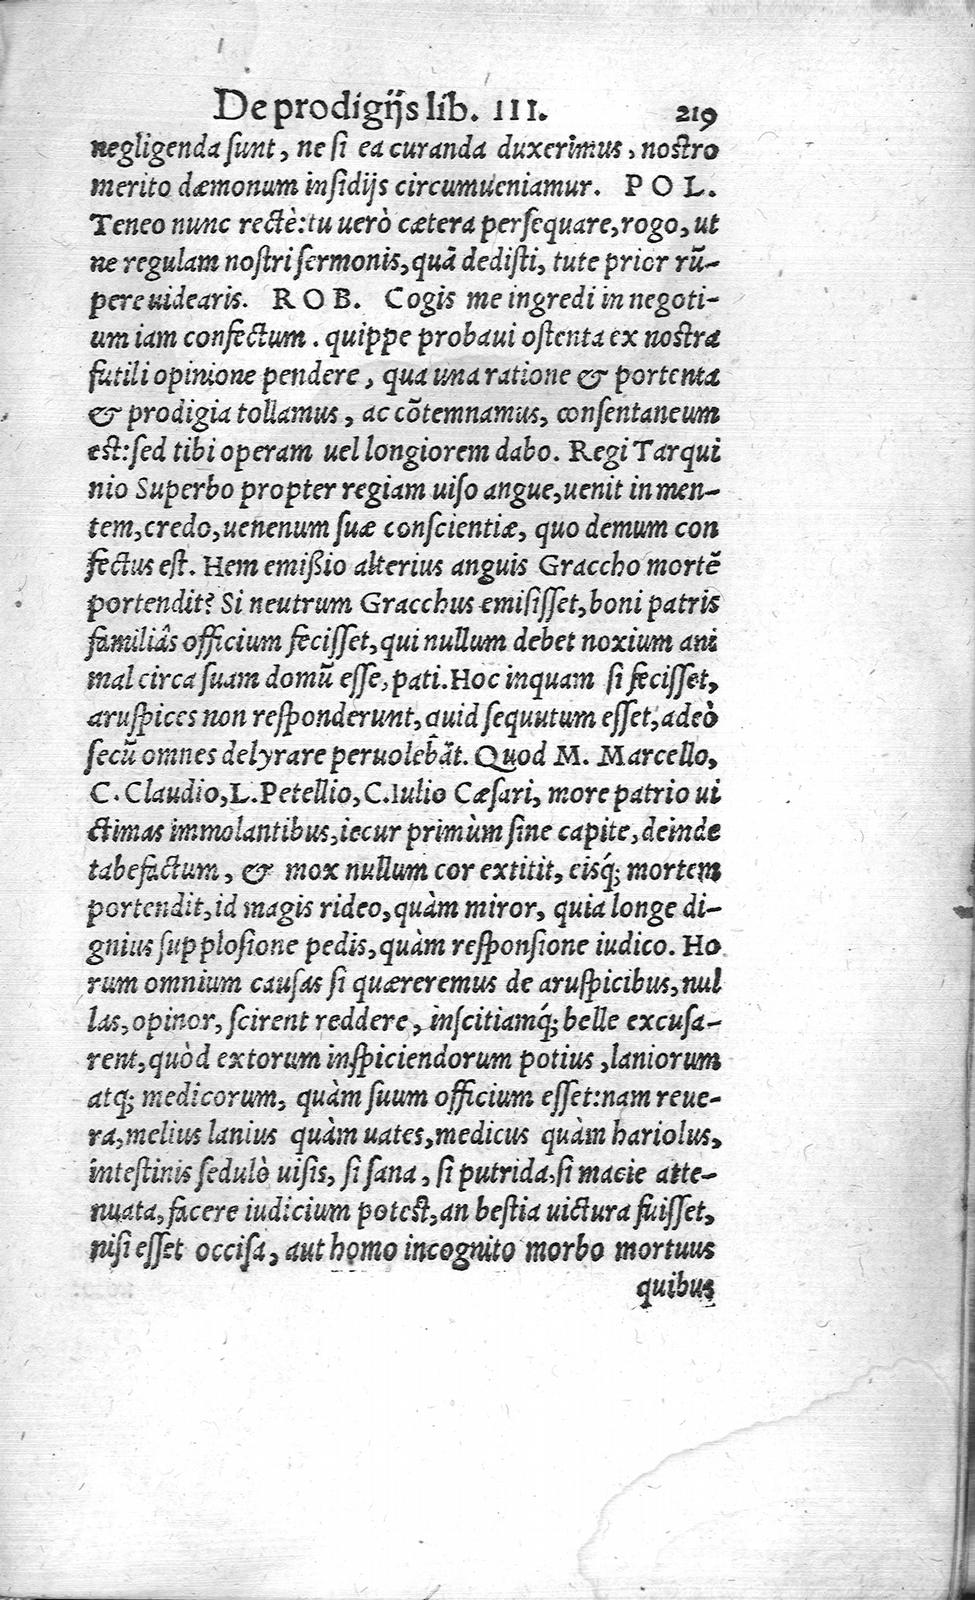 De prodigijs lib. III. 219
negligenda sunt, ne si ea curanda duxerimus, nostro
merito dæmonum insidijs circumueniamur. POL.
Teneo nunc rectè: tu uerò cætera persequare, rogo, ut
ne regulam nostri sermonis, quã dedisti, tute prior rũ-
pere uidearis. ROB. Cogis me ingredi in negoti-
um iam confectum. quippe probaui ostenta ex nostra
futili opinione pendere, qua una ratione & portenta
& prodigia tollamus, ac cõtemnamus, consentaneum
est: sed tibi operam uel longiorem dabo. Regi Tarqui
nio Superbo propter regiam uiso angue, uenit in men-
tem, credo, uenenum suæ conscientiæ, quo demum con
fectus est. Hem emißio alterius anguis Graccho mortẽ
portendit? Si neutrum Gracchus emisisset, boni patris
familiâs officium fecisset, qui nullum debet noxium ani
mal circa suam domũ esse, pati. Hoc inquam si fecisset,
aruspices non responderunt, quid sequutum esset, adeò
secũ omnes delyrare peruolebãt. Quod M. Marcello,
C. Claudio, L. Petellio, C. Iulio Cæsari, more patrio ui
ctimas immolantibus, iecur primùm sine capite, deinde
tabefactum, & mox nullum cor extitit, eisq́; mortem
portendit, id magis rideo, quàm miror, quia longe di-
gnius supplosione pedis, quàm responsione iudico. Ho
rum omnium causas si quæreremus de aruspicibus, nul
las, opinor, scirent reddere, inscitiamq́; belle excusa-
rent, quòd extorum inspiciendorum potius, laniorum
atq; medicorum, quàm suum officium esset: nam reue-
ra, melius lanius quàm uates, medicus quàm hariolus,
intestinis sedulò uisis, si sana, si putrida, si macie atte-
nuata, facere iudicium potest, an bestia uictura fuisset,
nisi esset occisa, aut homo incognito morbo mortuus
quibus